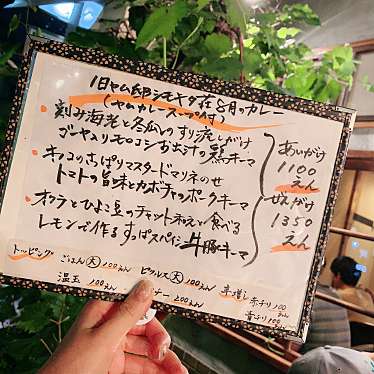 旧ヤム邸シモキタ荘8月のカレー
(ヤムカレースープ付)
・刻み海老と冬瓜のすり流しがけ
ゴーヤとリモロコシお出汁の鶏キーマ
あいがけ
1100
えん
・キノコのすっぱりマスタードマリネのせ
トマトの旨味とカボチャのポークキーマ
ぜんがけ
1350
えん
・オクラとひよこ豆のチャットネと食べる
レモンで作るすっぱスパイシー牛豚キーマ
トッピング
ごはん大 100えん
ピクルス大 100えん
辛増し 赤チリ100
えん
温玉
チー 200えん
青チリ100
えん